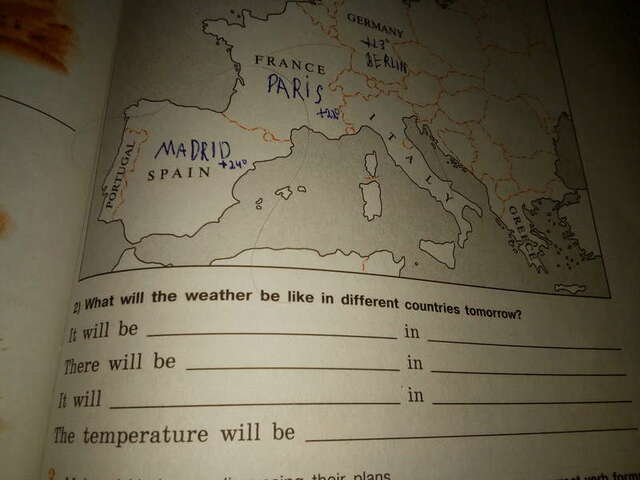 GERMANY
+13°
BERLIN
FRANCE
PARiS
ITALY
PORTUGAL
MADRID
+24°
SPAIN
GREECE
2) What will the weather be like in different countries tomorrow?
It will be ____________ in ____________
There will be ____________ in ____________
It will ____________ in ____________
The temperature will be ____________
their plans
verb form